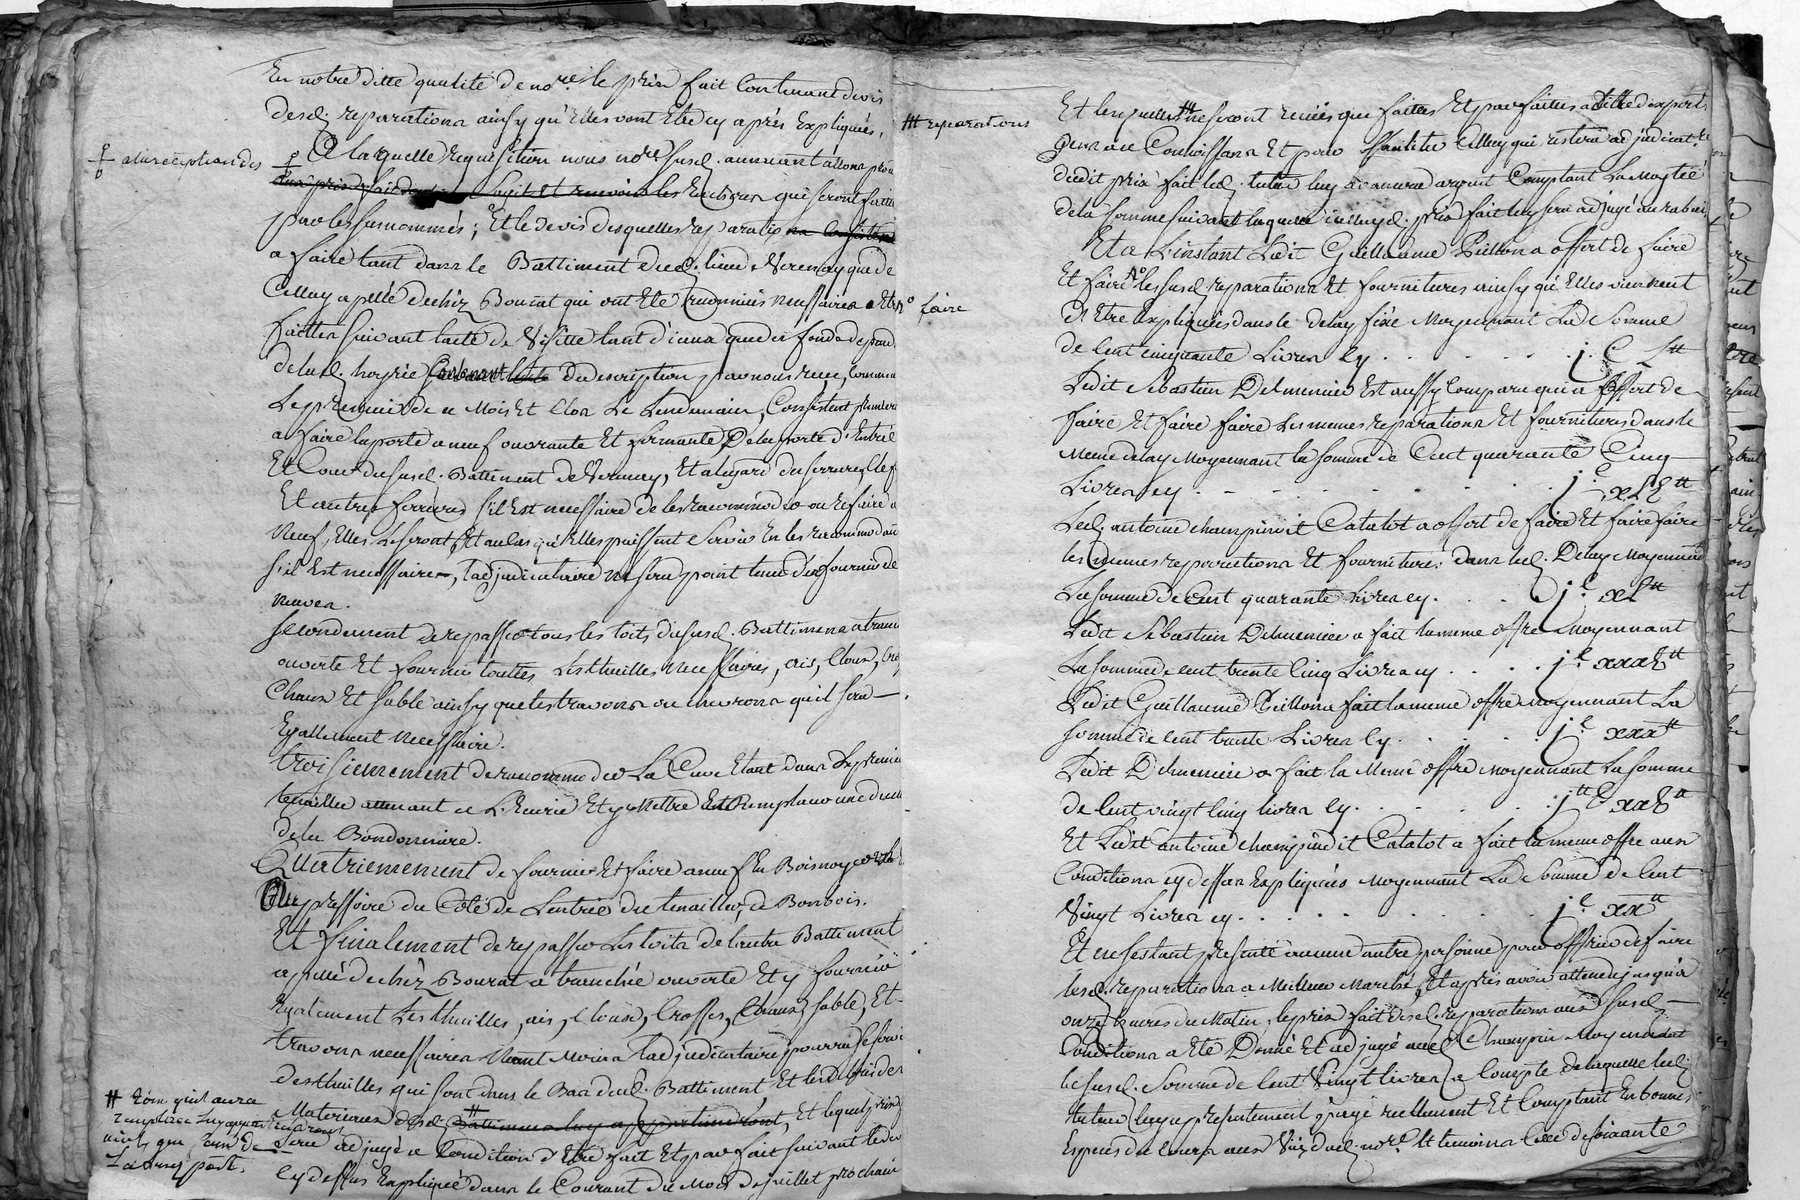 En notre ditte qualité de no.re le prix fait Contenant devis
desd. reparations ainsy qu'Elles vont Etre cy après Expliquées,
A laquelle requisition nous no.re susd. aurions
a la reception des
les Encheres qui seront faittes
par les surnommés; Et le devis desquelles reparations
a faire tant dans le Battiment dud. lieu que de
Celluy apellé de chéz Bourat qui ont Eté necessaires a Etre
faittes suivant lacte de Visitte tant d'iceux que des fonds
de lad. hoyrie description par nous
Le premier de ce Mois Et Clos Le Lendemain, Consistent
a faire la porte a neuf ouvrante Et fermante De la porte d'Entrée
Et Cour du susd. Battiment de Et a legard du serrures, Clef
Et autres ferrures s'il Est necessaire de les racommoder ou refaire a
Neuf, Elles Le seront, Et au cas qu'Elles puissent Servir En les racommodant
s'il Est necessaire, ladjudicataire ne sera point tenu d'En fournir de
neuves.
Secondement de repasser tous les toits du susd. Battiment a tranchée
ouverte Et fournir touttes Les thuilles Necessaires, ais, Clous,
Chaux Et sable ainsy que les travons ou chevrons qu'il sera
Egallement Necessaire.
troisiemement de racommoder La Cuve Etant dans Le premier
tenailler attenant a L'Ecurie Et y Mettre Et Remplacer une
de la Bondonniere.
Quatriemement de fournir Et faire a neuf En Bois noyer
pressoire du Coté de Lentrée du tenailler de Bonbois.
Et finalement de repasser Les toits de lautre Battiment
apellé de chéz Bourat a tranchée ouverte Et y fournir
Egalement Les thuilles, ais, Clous, Crosses, Chaux, sable, Et
travons necessaires Neant Moins ladjudicataire pourra se servir
des thuilles qui sont dans le Bas dud. Battiment, Et les debris des
Materiaux desd. Battiments luy appartiendront, Et lequel prix
sera adjugé a Condition d'Etre fait Et parfait suivant le devis
cy dessus Expliqué dans le Courant du Mois de juillet prochain
qu'il aura
remplacé luy appartiendront
ainsy que
reparations
faire
Et lesquelles ne seront receües que faittes Et parfaittes a ditte d'experts
gens a ce Connoissans Et pour Celluy qui restera adjudicat.re
dudit prix fait led. tuteur luy avancera argent Comptant La Moytié
de la somme suivant laquelle icelluyd. prix fait luy sera adjugé au rabais
Et a L'instant Ledit Guillaume Pillon a offert de faire
Et faire les susd. reparations Et fournitures ainsy qu'Elles viennent
D'Etre Expliquées dans le delay fixé Moyennant La Somme
de Cent cinquante Livres Cy . . . . . . j.C L tt
Ledit Sebastien Delmeniere Est aussy Comparu qui a offert de
faire Et faire faire Les mêmes reparations Et fournitures dans le
Meme delay Moyennant la somme de Cent quarante Cinq
Livres cy . . . . . . j.C xLV tt
Led. antoine champin dit Catalot a offert de faire Et faire faire
les memes reparations Et fournitures dans led. Delay Moyennant
La Somme de Cent quarante Livres cy . . . . j.C xL tt
Ledit Sebastien Delmeniere a fait la meme offre Moyennant
La somme de cent trente Cinq Livres cy . . . . j.C xxxV tt
Ledit Guillaume Pillon a fait la meme offre Moyennant La
somme de cent trente Livres Cy . . . . . j.C xxx tt
Ledit Delmeniere a fait la Meme offre Moyennant La somme
de Cent vingt Cinq livres Cy . . . . . . j.C xxV tt
Et Ledit antoine champin dit Catalot a fait la meme offre aux
Conditions cy dessus Expliquées Moyennant La Somme de Cent
Vingt Livres cy . . . . . . . j.C xx tt
Et ne s'estant presenté aucune autre personne pour offrir de faire
lesd. reparations a Meilleur Marché, Et après avoir attendu jusqu'a
onze heures du Matin, le prix fait desd. reparations aux susd.
Conditions a Eté Donné Et adjugé aud. Champin Moyennant
la susd. Somme de Cent Vingt livres a Compte de laquelle led.
tuteur luy a presentement payé reellement Et Comptant En bonnes
Especes du Cours aux Vüe dud. no.re Et temoins Celle de soixante